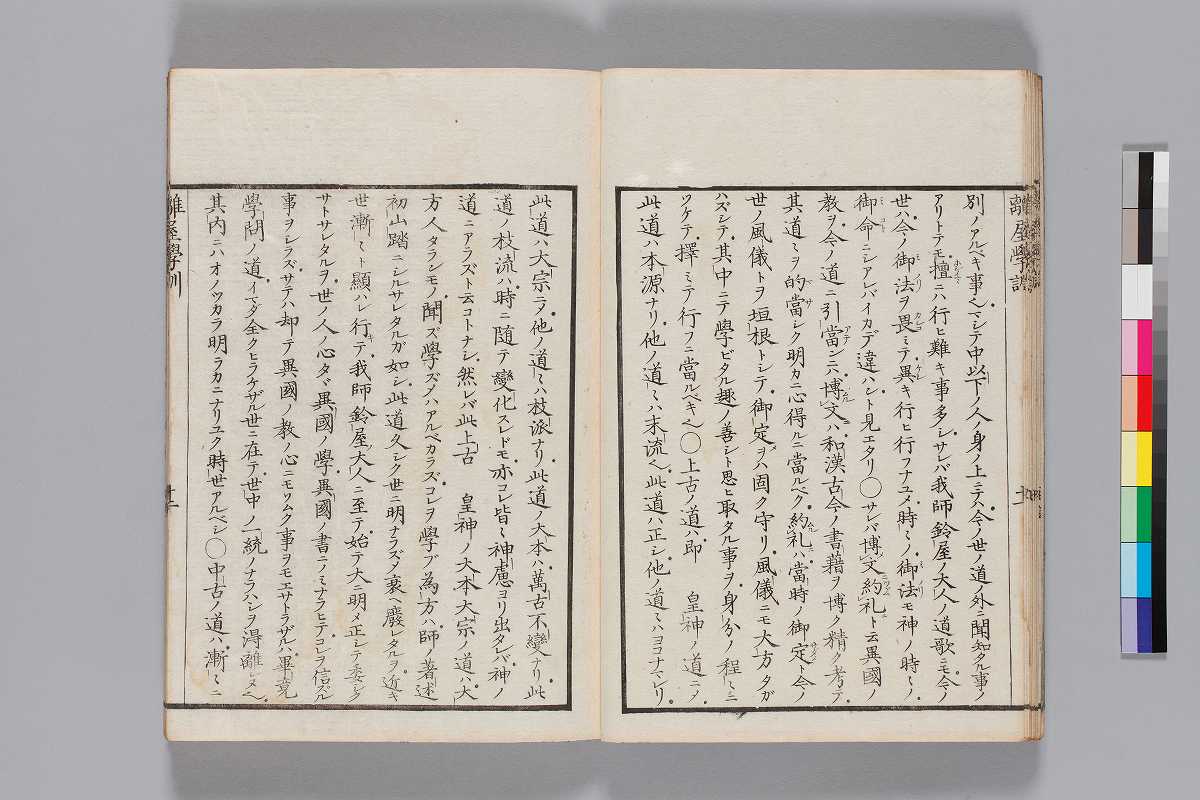 離屋學訓
別ノアルベキ事ヘ。マシテ中以下ノ人ノ身ノ上ニテハ。今ノ世ノ道ノ外ニ聞知タル事ノ
アリトテモ。擅ニハ行ヒ難キ事多シ。サレバ我師鈴屋ノ大人ノ道歌ニモ。今ノ
世ハ。今ノ御法ヲ畏ミテ。異キ行ヒ行フナユメ。時〻ノ。御法モ神ノ時〻ノ。
御命ニシアレバイカデ違ハント見エタリ〇サレバ博文約礼ト云異國ノ
教ヲ。今ノ道ニ引當ンニハ。博文ハ和漢古今ノ書籍ヲ博ク精ク考テ。
其道〻ヲ的當シク明カニ心得ルニ當ルベク。約礼ハ。當時ノ御定ト今ノ
世ノ風儀トヲ垣根トシテ。御定ヲハ固ク守リ。風儀ニモ大方タガ
ハズシテ。其中ニテ學ビタル趣ノ善シト思ヒ取タル事ヲ。身分ノ程〻ニ
ツケテ。擇ミテ行フニ當ルベキヘ〇上古ノ道ハ。即 皇神ノ道ニテ。
此道ハ本源ナリ。他ノ道〻ハ末流ヘ。此道ハ正シ。他ノ道〻ハヨコナマレリ。
十一
此道ハ大宗ニテ。他ノ道〻ハ枝派ナリ。此道ノ大本ハ。萬古不變ナリ。此
道ノ枝流ハ。時ニ随テ變化スレドモ。亦コレ皆〻神慮ヨリ出タレバ。神ノ
道ニアラズト云コトナシ。然レバ此上古 皇神ノ大本大宗ノ道ハ。大
方人タランモノ。聞ズ學ズハアルベカラズ。コレヲ學ブ為方ハ。師ノ著述
初山踏ニシルサレタルガ如シ。此道久シク世ニ明ナラズ。衰ヘ廢レタルヲ。近キ
世漸〻ト顯ハレ行テ。我師鈴屋大人ニ至テ。始テ大ニ明メ正シテ委シク
サトサレタルヲ。世ノ人ノ心。タヾ異國ノ學。異國ノ書ニノミナラヒテ。コレヲ信ズル
事ヲシラズ。サテハ却テ異國ノ教ノ心ニモソムク事ヲモエサトラザルハ。畢竟
學問ノ道。イマダ全クヒラケザル世ニ在テ。世中ノ一統ノナラハシヲ得離レヌヘ。
其内ニハオノツカラ明ラカニナリユク時世アルベシ〇中古ノ道ハ。漸〻ニ
離屋學訓
十二